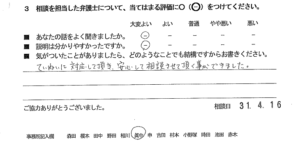 3 相談を担当した弁護士について、当てはまる評価に○(○)をつけてください。
大変よい よい 普通 やや悪い 悪い
■ あなたの話をよく聞きましたか。
■ 説明は分かりやすかったですか。
■ 気がついたことがありましたら、どのようなことでも結構ですからお書きください。
ていねいに対応して頂き、安心して相談させて頂く事ができました。
ご協力ありがとうございました。
相談日 31.4.16
事務局記入欄 森田 榎本 田中 野田 相川 申 吉田 村本 小野塚 時田 池田 赤木